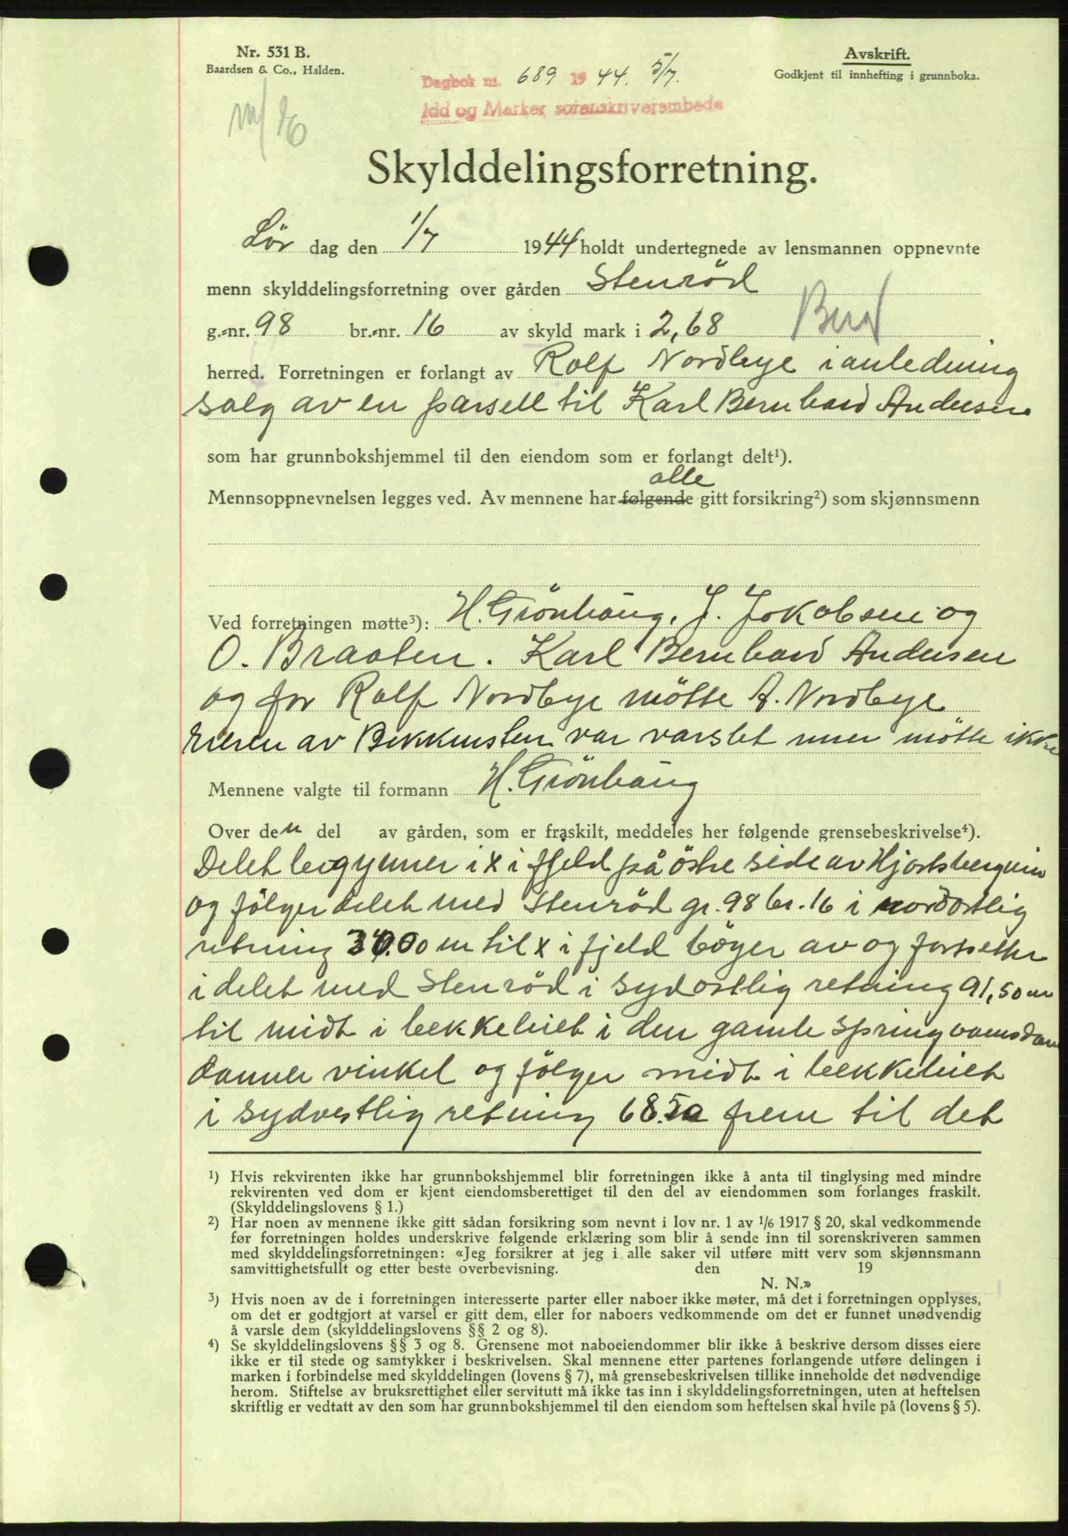 Nr. 531 B.
Baardsen & Co., Halden.
Avskrift.
Godkjent til innhefting i grunnboka.
Dagbok nr. 689 19 44. 5/7.
Idd og Marker sorenskriverembede
Skylddelingsforretning.
Lør dag den 1/7 1944 holdt undertegnede av lensmannen oppnevnte
menn skylddelingsforretning over gården Stenröd
g.-nr. 98 br.-nr. 16 av skyld mark i 2,68
herred. Forretningen er forlangt av Rolf Nordbye i anledning
salg av en parsell til Karl Bernhard Andersen
som har grunnbokshjemmel til den eiendom som er forlangt delt¹).
alle
Mennsoppnevnelsen legges ved. Av mennene har følgende gitt forsikring²) som skjønnsmenn
Ved forretningen møtte³): H. Grönhaug, J. Jokobsen og
O. Braaten. Karl Bernhard Andersen
og for Rolf Nordbye mötte A. Nordbye
Eieren av Bekkmsten var varslet men mötte ikke
Mennene valgte til formann H. Grönhaug
Over den del av gården, som er fraskilt, meddeles her følgende grensebeskrivelse⁴).
Delet begynner i x i fjeld på östre side av Hjortsbergvein
og fölger delet med Stenröd gr. 98 br. 16 i nordostlig
retning 34.00 m til x i fjeld böyer av og fortsetter
i delet med Stenröd i sydostlig retning 91,50 m
til midt i bekkeleiet i den gamle springvansdam
danner vinkel og fölger midt i bekkeleiet
i sydvestlig retning 68.50 frem til det
¹) Hvis rekvirenten ikke har grunnbokshjemmel blir forretningen ikke å anta til tinglysing med mindre
rekvirenten ved dom er kjent eiendomsberettiget til den del av eiendommen som forlanges fraskilt.
(Skylddelingslovens § 1.)
²) Har noen av mennene ikke gitt sådan forsikring som nevnt i lov nr. 1 av 1/6 1917 § 20, skal vedkommende
før forretningen holdes underskrive følgende erklæring som blir å sende inn til sorenskriveren sammen
med skylddelingsforretningen: «Jeg forsikrer at jeg i alle saker vil utføre mitt verv som skjønnsmann
samvittighetsfullt og etter beste overbevisning. den 19
N. N.»
³) Hvis noen av de i forretningen interesserte parter eller naboer ikke møter, må det i forretningen opplyses,
om det er godtgjort at varsel er gitt dem, eller for naboers vedkommende om det er funnet unødvendig
å varsle dem (skylddelingslovens §§ 2 og 8).
⁴) Se skylddelingslovens §§ 3 og 8. Grensene mot naboeiendommer blir ikke å beskrive dersom disses eiere
ikke er til stede og samtykker i beskrivelsen. Skal mennene etter partenes forlangende utføre delingen i
marken i forbindelse med skylddelingen (lovens § 7), må grensebeskrivelsen tillike inneholde det nødvendige
herom. Stiftelse av bruksrettighet eller servitutt må ikke tas inn i skylddelingsforretningen, uten at heftelsen
skriftlig er vedtatt av den som har grunnbokshjemmel til den eiendom som heftelsen skal hvile på (lovens § 5).